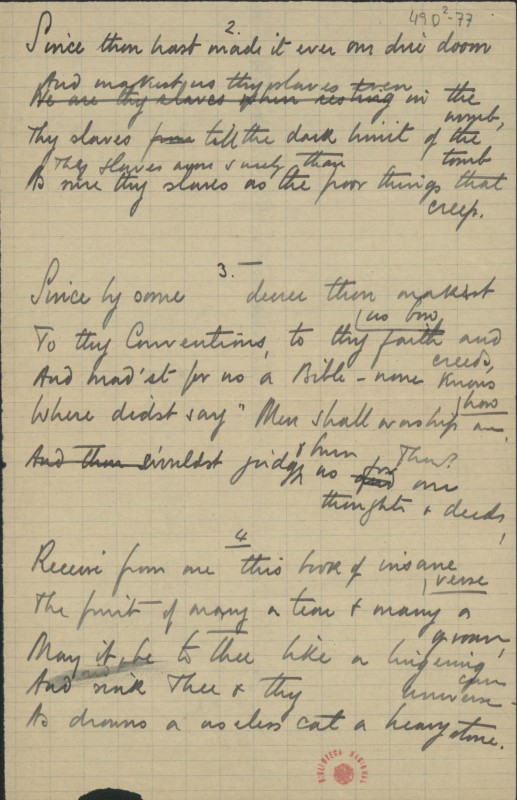 49D²-77
2.
Since thou hast made it ever our due doom
And makest us thy slaves even
We are thy slaves when resting in the womb,
Thy slaves from till the dark limit of the tomb
Thy slaves more surely than
As sure thy slaves as the poor things that creep.
3.
Since by some decree thou makest
us bow
To thy Conventions, to thy faith and creeds,
And mad'st for us a Bible - none knows how
Where didst say "Men shall worship me,
And thou shouldst judge us for our Thou?
thoughts & deeds,
4
Receive from me this book of insane verse
The fruit of many a tear & many a groan,
May it be to Thee like a lingering curse
And sink Thee & thy universe
As drowns a useless cat a heavy stone.
BIBLIOTECA NACIONAL